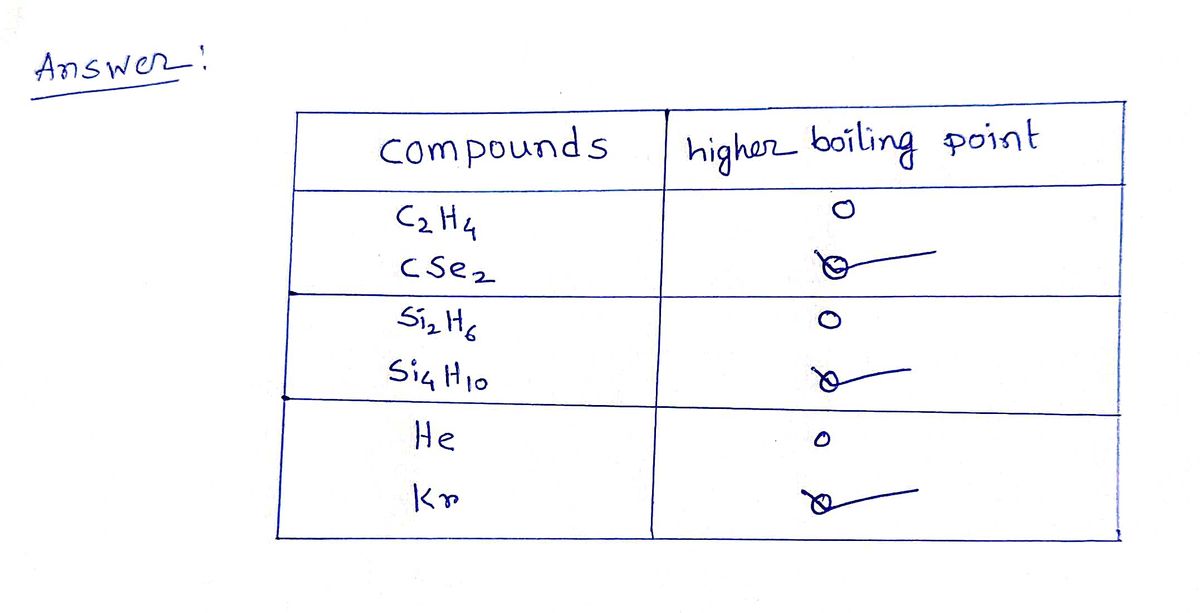 Answer:
compounds higher boiling point
C₂H₄
CSe₂
Si₂H₆
Si₄H₁₀
He
Kr